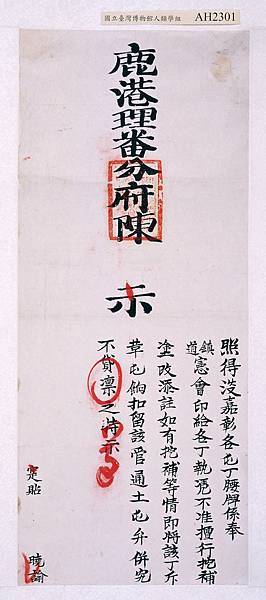 國立臺灣博物館人類學組
AH2301
鹿港理番分府陳
示
照得淡嘉彰各屯丁腰牌係奉
鎮道憲會印給各丁執凭不准擅行挖補
塗改添註如有挖補等情即將該丁斥
革屯餉扣留該管通土屯弁併究
不貸凜之特示
實貼
曉諭